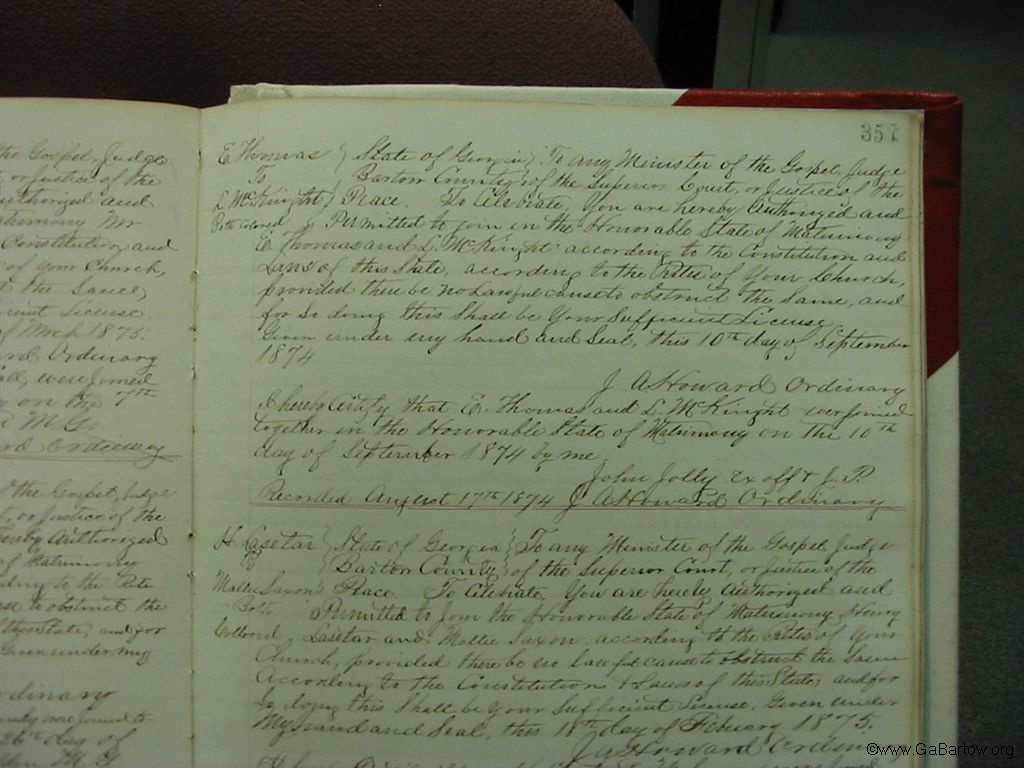 the Gospel, Judge
or Justice of the
Authorized and
Matrimony Mr
Constitution and
of your Church,
the Sauce
cient License
of Mrch 1875.
ard Ordinary
all, were Joined
on the 7th
M.G.
ard Ordinary
the Gospel, Judge
, or Justice of the
hereby Authorized
of Matrimony
ding to the Rite
se to obstruct the
this State, and for
Given under my
dinary
were joined to
26th day of
M. G
351
E Thomas } State of Georgia } To any Minister of the Gospel, Judge
To Bartow County } of the Superior Court, or Justice of the
L McKnight } Peace. To Celebrate, You are hereby Authorized and
Both Colored Permitted to join in the Honorable State of Matrimony
E. Thomas and L. McKnight according to the Constitution and
Laws of this State, according to the Rites of Your Church,
provided there be no Lawful cause to obstruct the Same, and
for So doing this Shall be Your Sufficient License
Given under my hand and Seal, this 10th day of September
1874
J A Howard Ordinary
I hereby Certify that E. Thomas and L. McKnight were joined
together in the Honorable State of Matrimony on the 10th
day of September 1874 by me
John Jolly Ex off & J. P.
Recorded August 17th 1874 J A Howard Ordinary
H Lasetar } State of Georgia } To any Minister of the Gospel, Judge
To } Bartow County } of the Superior Court, or Justice of the
Mollie Saxon } Peace. To Celebrate, You are hereby Authorized and
Both Permitted to Join the Honorable State of Matrimony Henry
Collored Lasetar and Mollie Saxon according to the Rites of Your
Church, provided there be no lawful cause to obstruct the Same
According to the Constitution & Laws of this State, and for
So doing this Shall be Your Sufficient License, Given under
My hand and Seal, this 18th day of Febuary 1875.
J A Howard Ordinary
©www.GaBartow.org